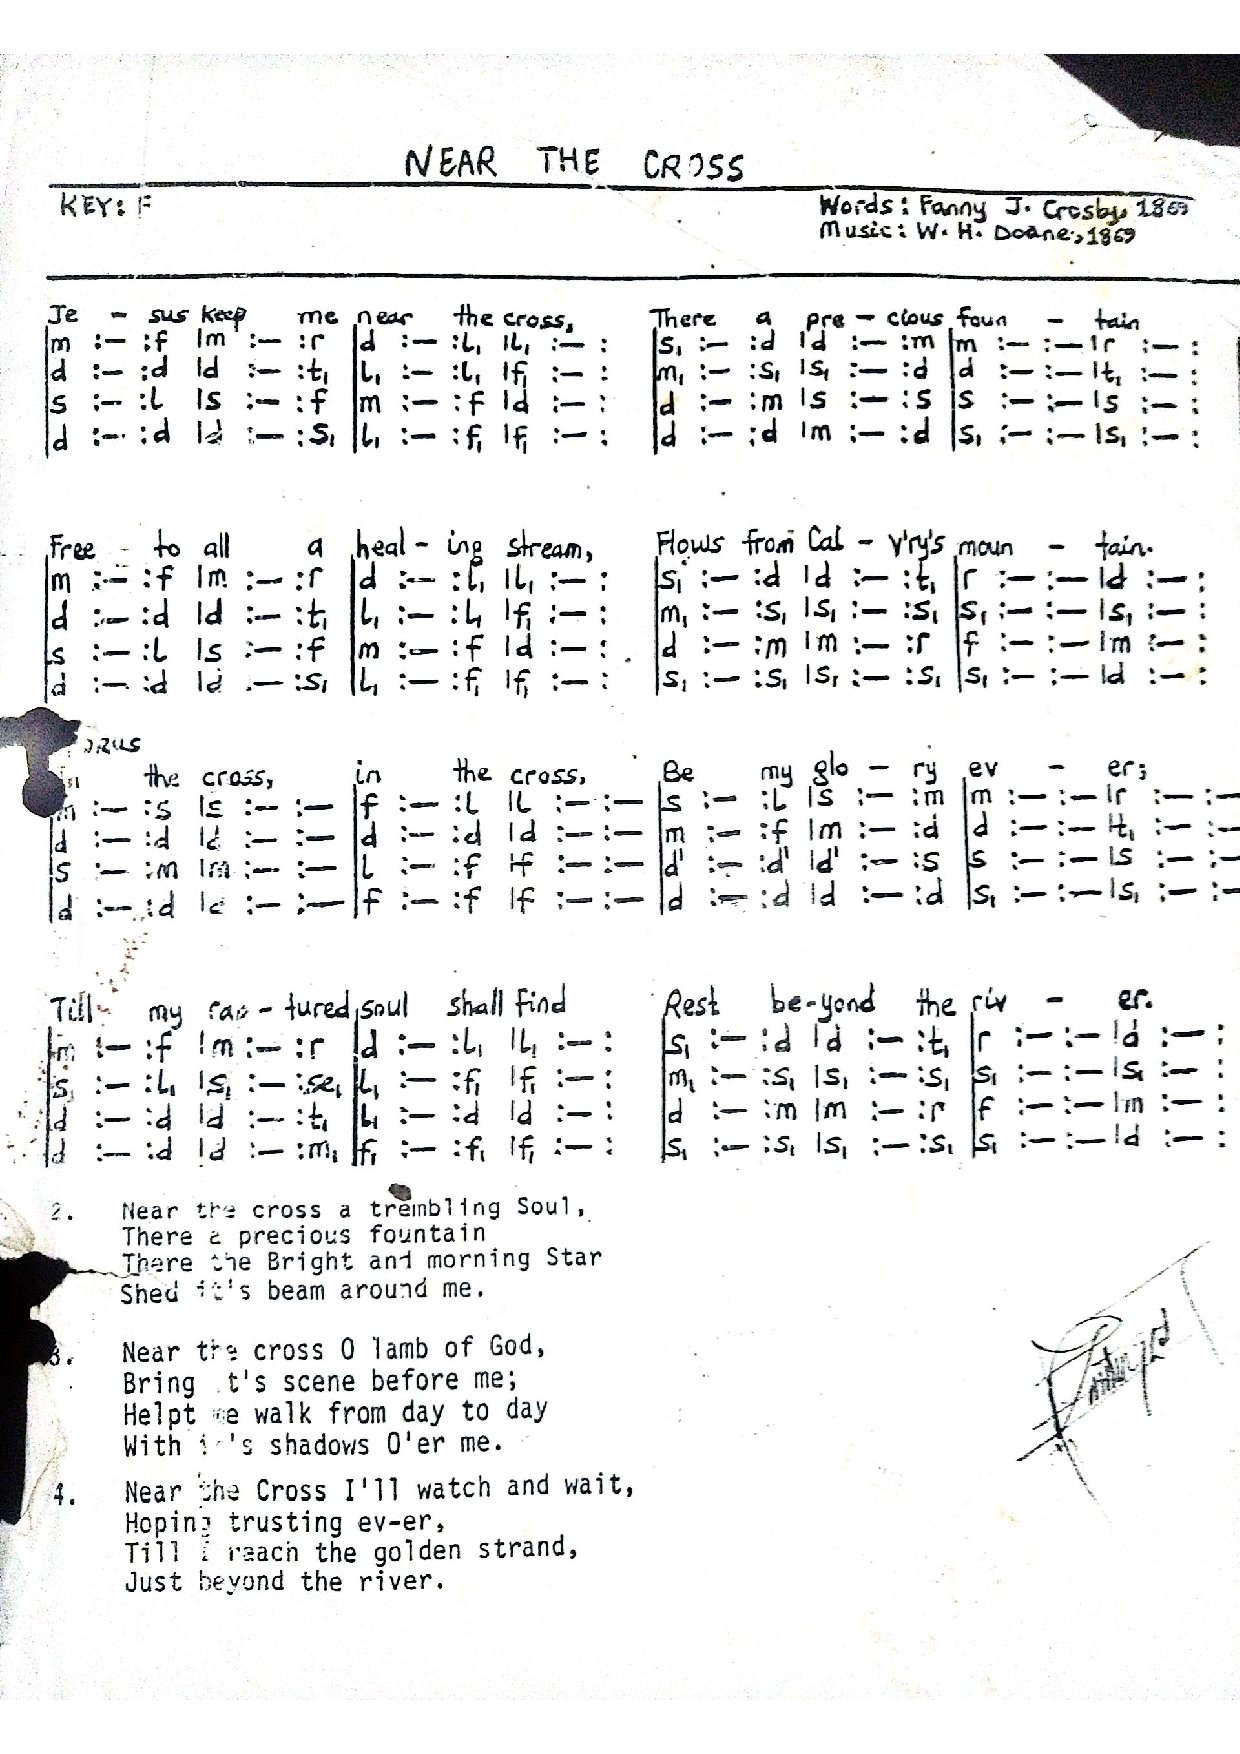 NEAR THE CROSS
KEY: F
Words: Fanny J. Crosby, 1869
Music: W. H. Doane, 1869
Je - sus keep me near the cross, There a pre - cious foun - tain
m :- :f |m :- :r |d :- :l, |l, :- : |s, :- :d |d :- :m |m :- :- |r :- :
d :- :d |d :- :t, |l, :- :l, |f, :- : |m, :- :s, |s, :- :d |d :- :- |t, :- :
s :- :l |s :- :f |m :- :f |d :- : |d :- :m |s :- :s |s :- :- |s :- :
d :- :d |d :- :s, |l, :- :f, |f, :- : |d :- :d |m :- :d |s, :- :- |s, :- :
Free - to all a heal - ing stream, Flows from Cal - v'ry's moun - tain.
m :- :f |m :- :r |d :- :l, |l, :- : |s, :- :d |d :- :t, |r :- :- |d :- :
d :- :d |d :- :t, |l, :- :l, |f, :- : |m, :- :s, |s, :- :s, |s, :- :- |s, :- :
s :- :l |s :- :f |m :- :f |d :- : |d :- :m |m :- :r |f :- :- |m :- :
d :- :d |d :- :s, |l, :- :f, |f, :- : |s, :- :s, |s, :- :s, |s, :- :- |d :- :
ORUS
In the cross, in the cross, Be my glo - ry ev - er;
m :- :s |s :- :- |f :- :l |l :- :- |s :- :l |s :- :m |m :- :- |r :- :-
d :- :d |d :- :- |d :- :d |d :- :- |m :- :f |m :- :d |d :- :- |t, :- :-
s :- :m |m :- :- |l :- :f |f :- :- |d' :- :d' |d' :- :s |s :- :- |s :- :-
d :- :d |d :- :- |f :- :f |f :- :- |d :- :d |d :- :d |s, :- :- |s, :- :-
Till - my rap - tured soul shall find Rest be-yond the riv - er.
m :- :f |m :- :r |d :- :l, |l, :- : |s, :- :d |d :- :t, |r :- :- |d :- :
s, :- :l, |s, :- :se, |l, :- :f, |f :- : |m, :- :s, |s, :- :s, |s, :- :- |s, :- :
d :- :d |d :- :t, |l, :- :d |d :- : |d :- :m |m :- :r |f :- :- |m :- :
d :- :d |d :- :m, |f, :- :f, |f, :- : |s, :- :s, |s, :- :s, |s, :- :- |d :- :
2. Near the cross a trembling Soul,
There a precious fountain
There the Bright and morning Star
Shed it's beam around me.
3. Near the cross O lamb of God,
Bring t's scene before me;
Helpt me walk from day to day
With i's shadows O'er me.
4. Near the Cross I'll watch and wait,
Hoping trusting ev-er,
Till I reach the golden strand,
Just beyond the river.